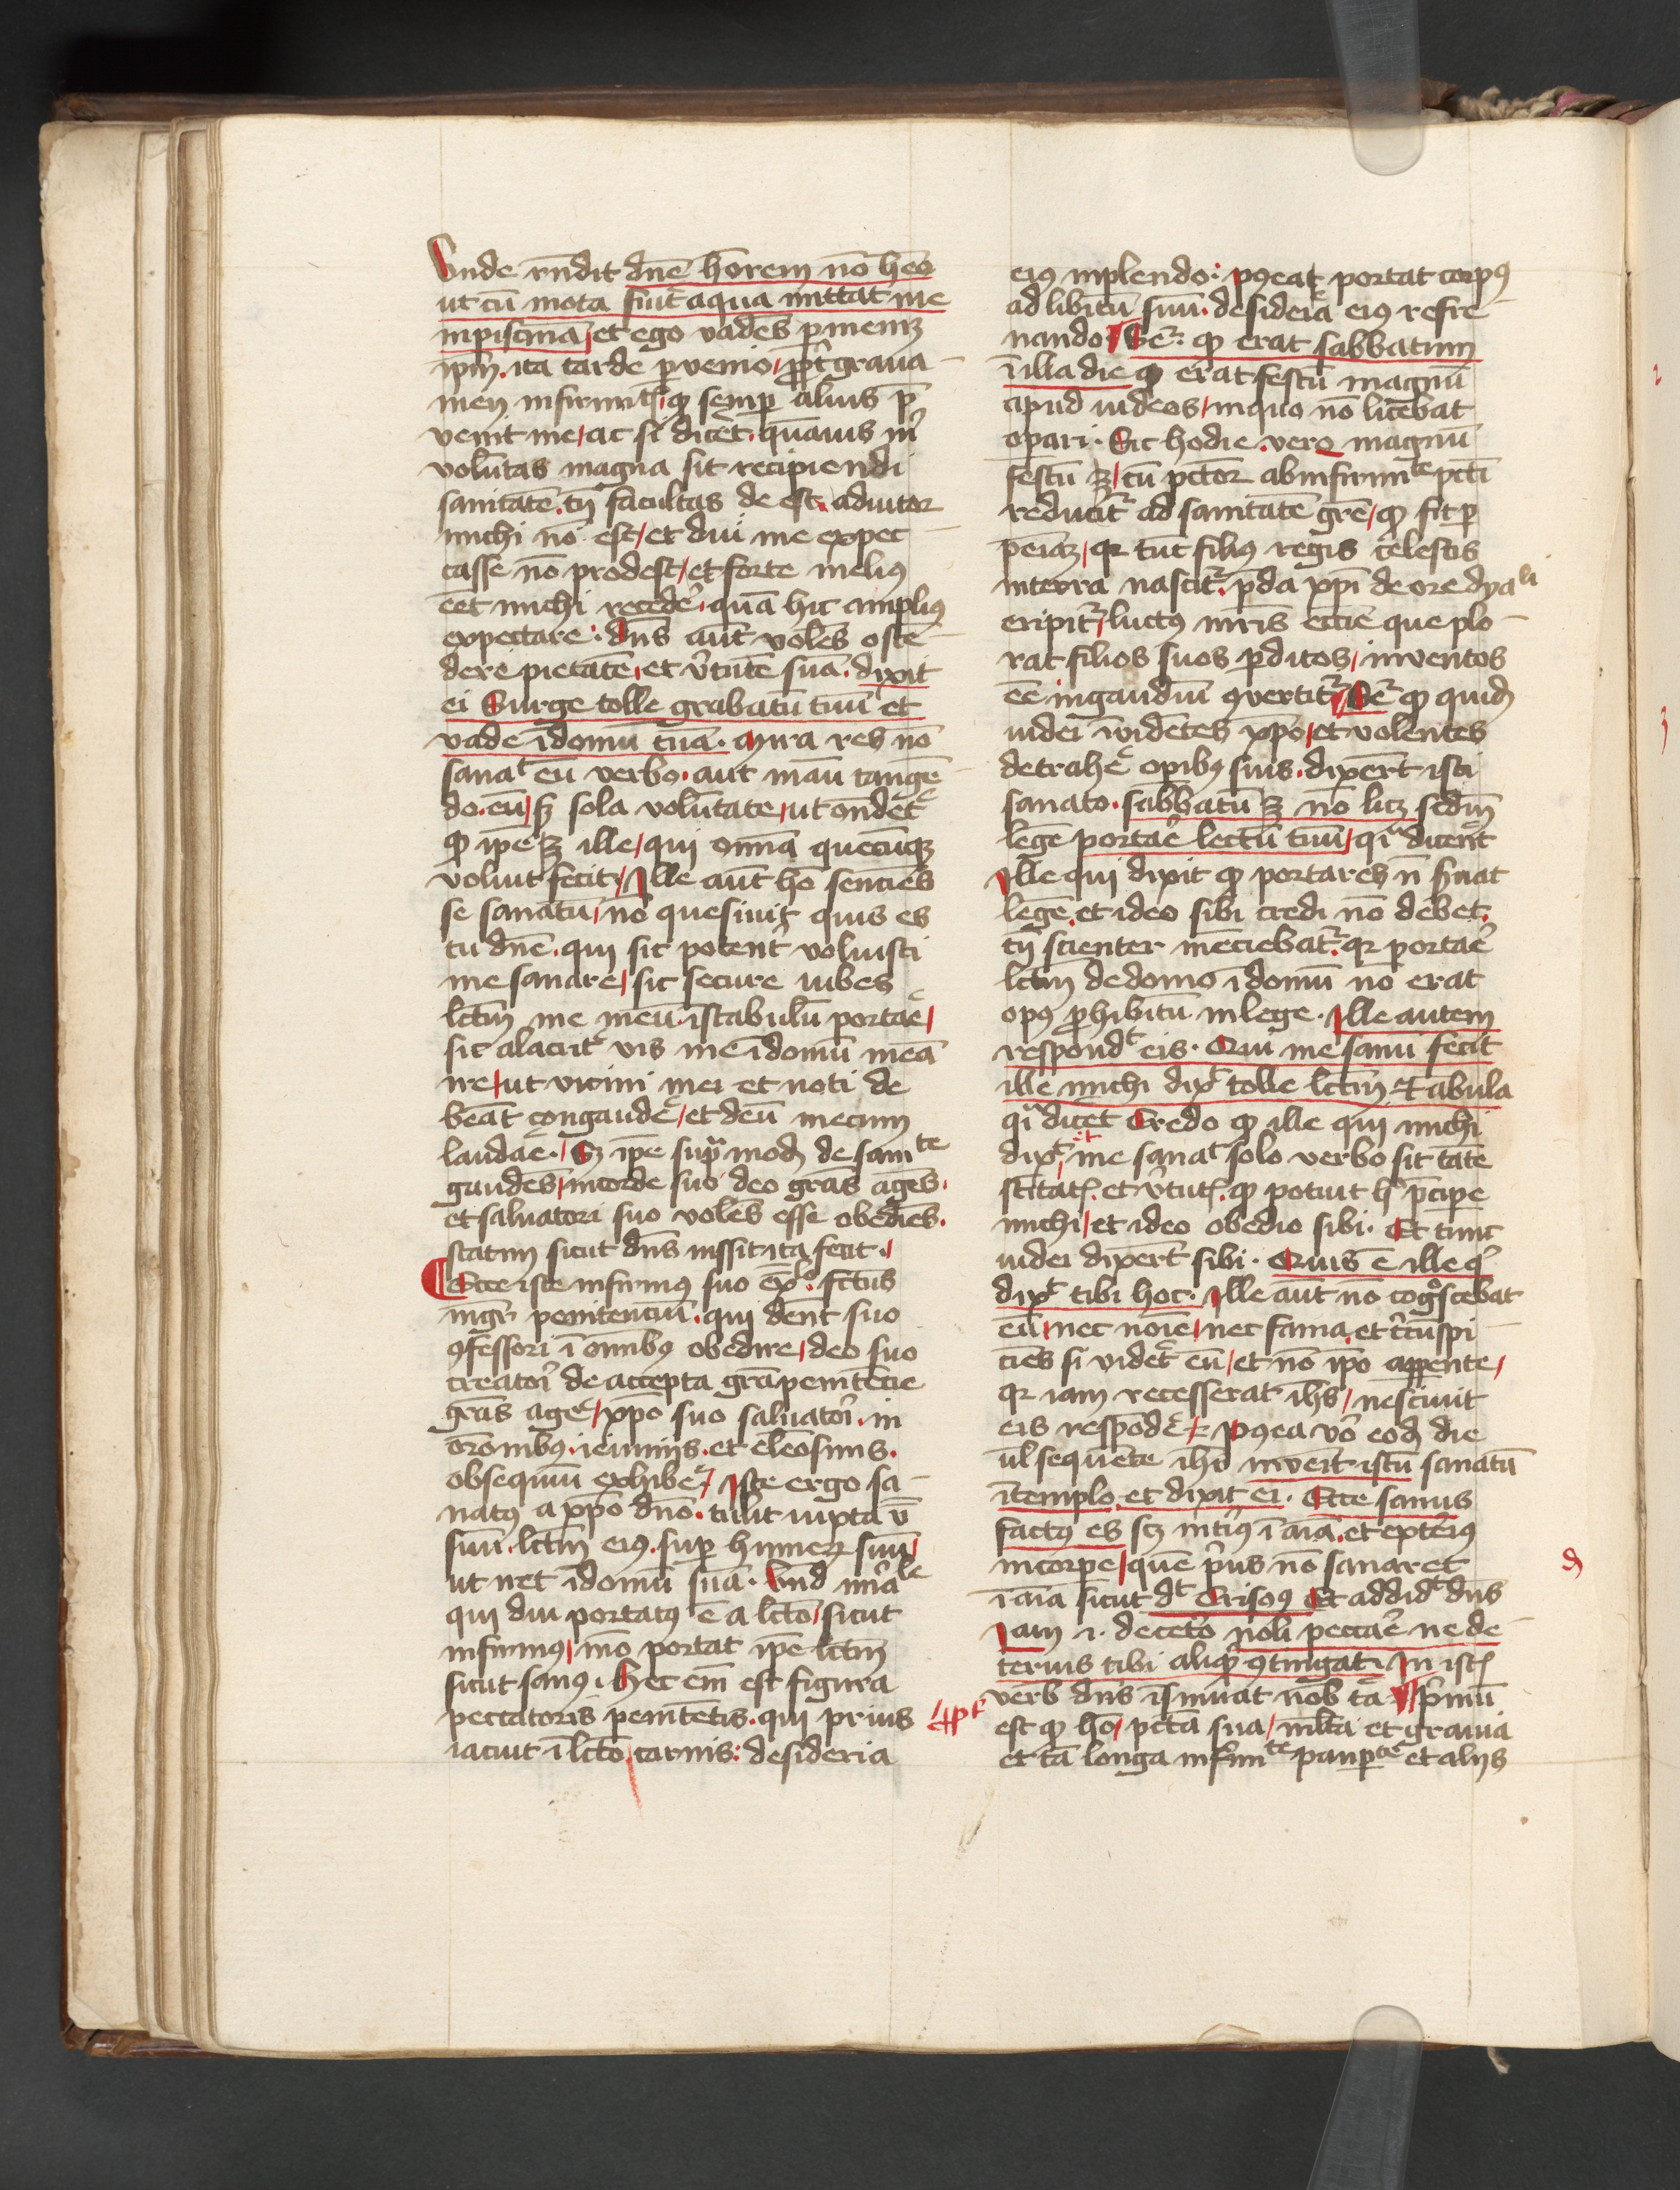 Unde rn̄dit dn̄e hōrem nō heō
ut cū mota fuit aqua mittat me
in piscinā et ego vadēs p menꝫ
ip̄m. ita tarde pvenio, ppt grava
men infirmitꝭ, ꝙ semp alius p̄
venit me, ac si dicet. quāuis m̄
volūtas magna sit recipiendi
sanitatē. tn̄ facultas de est. adiutor
michi nō est, et diu me expec
tasse nō prodest, et forte melius
eēt michi recedē. quā hic amplius
expectare. dn̄s aūt volēs ostē
dere pietatē, et v̄tutē suā. dixit
ei Surge tolle grabatū tuū et
vade ī domū tuā. Mira res nō
sanat eū verbo. aut manū tangē
do eū, sꝫ sola volūtate, ut ondet
ꝙ ip̄e ꝫ ille, qui om̄ia quecūqꝫ
voluit fecit, Ille aūt hō senciēs
se sanatū, nō quesiuit quis es
tu dn̄e. qui sic potent voluisti
me sanare, sic secure iubes
lctm̄ me meū. ī stabulū portare,
sic alacrit vis me ī domū meā
ire, ut vicini mei et noti de
beāt congaudē, et deū mecum
laudāe. Sꝫ ip̄e supra modū de sanite
gaudēs, in corde suo deo grās agēs.
et saluatori suo volēs esse obediēs.
statim sicut dn̄s iussit ita fecit.
Ecce iste infirmꝰ suo exlo. fctus
mgr̄ penitenciū. qui dēnt suo
ꝯfessori ī om̄ibꝰ obedire, deo suo
creatori de accepta grā penitēcie
grās age, xp̄o suo saluatori. in
orōnibꝰ. ieiuniis. et eleosinis.
obsequiū exhibe, Iste ergo sa
natꝰ a xp̄o dn̄o. tulit iuxta v̄
suū. lctm̄ eiꝰ. sup humerꝫ suū,
ut iret ī domū suā. Und mirale
qui diu portatꝰ ē a lcto, sicut
infirmꝰ, mō portat ip̄e lctm̄
sicut sanꝰ. Hec em̄ est figura
peccatoris penitētis. qui prius
iacuit ī lcto, carnis: desideria
eiꝰ inplendo: pꝰea portat corpꝰ
ad libitū suū. desideria eiꝰ refre
nando. Sēr ꝙ erat sabbatum
ī illa die ꝙ erat festū magnū
apud iudeos, in quo nō licebat
opari. Sic hodie vero magnū
festū ꝫ, cū pctor ab infirmite pcti
reducitr ad sanitatē grē, ꝙ fit p
peīaꝫ, qr tūc filiꝰ regis celestis
in terra nascitr. pda xp̄i de ore dyali
eripitr, luctꝰ mr̄is eccie que plo
rat filios suos pditos, inventos
eē in gaudiū ꝯvertitr, Sēr ꝙ quidꝫ
iudei ī vidētes xp̄o, et volentes
detrahē opibꝰ suis. dixert isti
sanato. sabbatū ꝫ nō licꝫ sedm̄
legē portare lectū tuū, qi dicent
Ille qui dixit ꝙ portares n̄ suat
legē et ideo sibi credi nō debet.
tn̄ scienter mēciebatr. qr portare
lctm̄ de domo ī domū nō erat
opꝰ phibitū in lege. Ille autem
respondt eis. Qui me sanū fecit
ille michi dixt tolle lctm̄ Et abula
qi dicet Credo ꝙ ille qui michi
dixt, me sanat solo verbo sit tāte
scītatꝭ. et v̄tutꝭ. ꝙ potuit h p̄cipe
michi, et ideo obedio sibi. Et tunc
iudei dixert sibi. Quis ē ille q̄
dixt tibi hoc. Ille aūt nō cogscebat
eū, nec noīe, nec fama. et circūspi
ciēs si videt eū, et nō ip̄o apparente,
qr iam recesserat ih̄s, nesciuit
eis respōdē. Pꝰea vō eodꝫ die
ul sequēte ih̄s invēit istū sanatū
ī templo. et dixit ei. Ecce sanus
factꝰ es scꝫ intiꝰ ī aīa. et exteriꝰ
in corpe, quē pius nō sanaret
ī aīa sicut dt Crisoꝰ Et addidt dn̄s
Iam i. decetō noli peccare ne de
terius tibi aliqd ꝯtingat. In istꝭ
verb dn̄s īsinuat nob tā Pimū
est ꝙ hō, pctā sua, mlta et grauia
et tā longa infirmite paupte et aliis